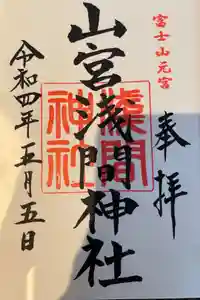 富士山元宮
奉拝
山宮浅間神社
浅間神社
令和四年五月五日